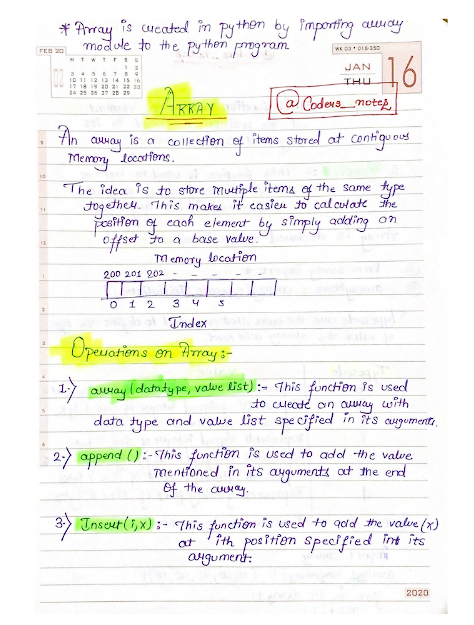 * Array is created in python by importing array
module to the python program
FEB 20
M T W T F S S
1 2
3 4 5 6 7 8 9
10 11 12 13 14 15 16
17 18 19 20 21 22 23
24 25 26 27 28 29
WK 03 • 016-350
JAN
THU
16
ARRAY
@Coders_notes
An array is a collection of items stored at contiguous
Memory locations.
The idea is to store multiple items of the same type
together. This makes it easier to calculate the
position of each element by simply adding an
offset to a base value.
Memory location
200 201 202 - - - - -
0 1 2 3 4 5
Index
Operations on Array:-
1.) array (datatype, value list) :- This function is used
to create an array with
data type and value list specified in its arguments.
2.) append () :- This function is used to add the value
mentioned in its arguments at the end
of the array.
3.) Insert (i,x) :- This function is used to add the value (x)
at ith position specified int its
argument.
2020